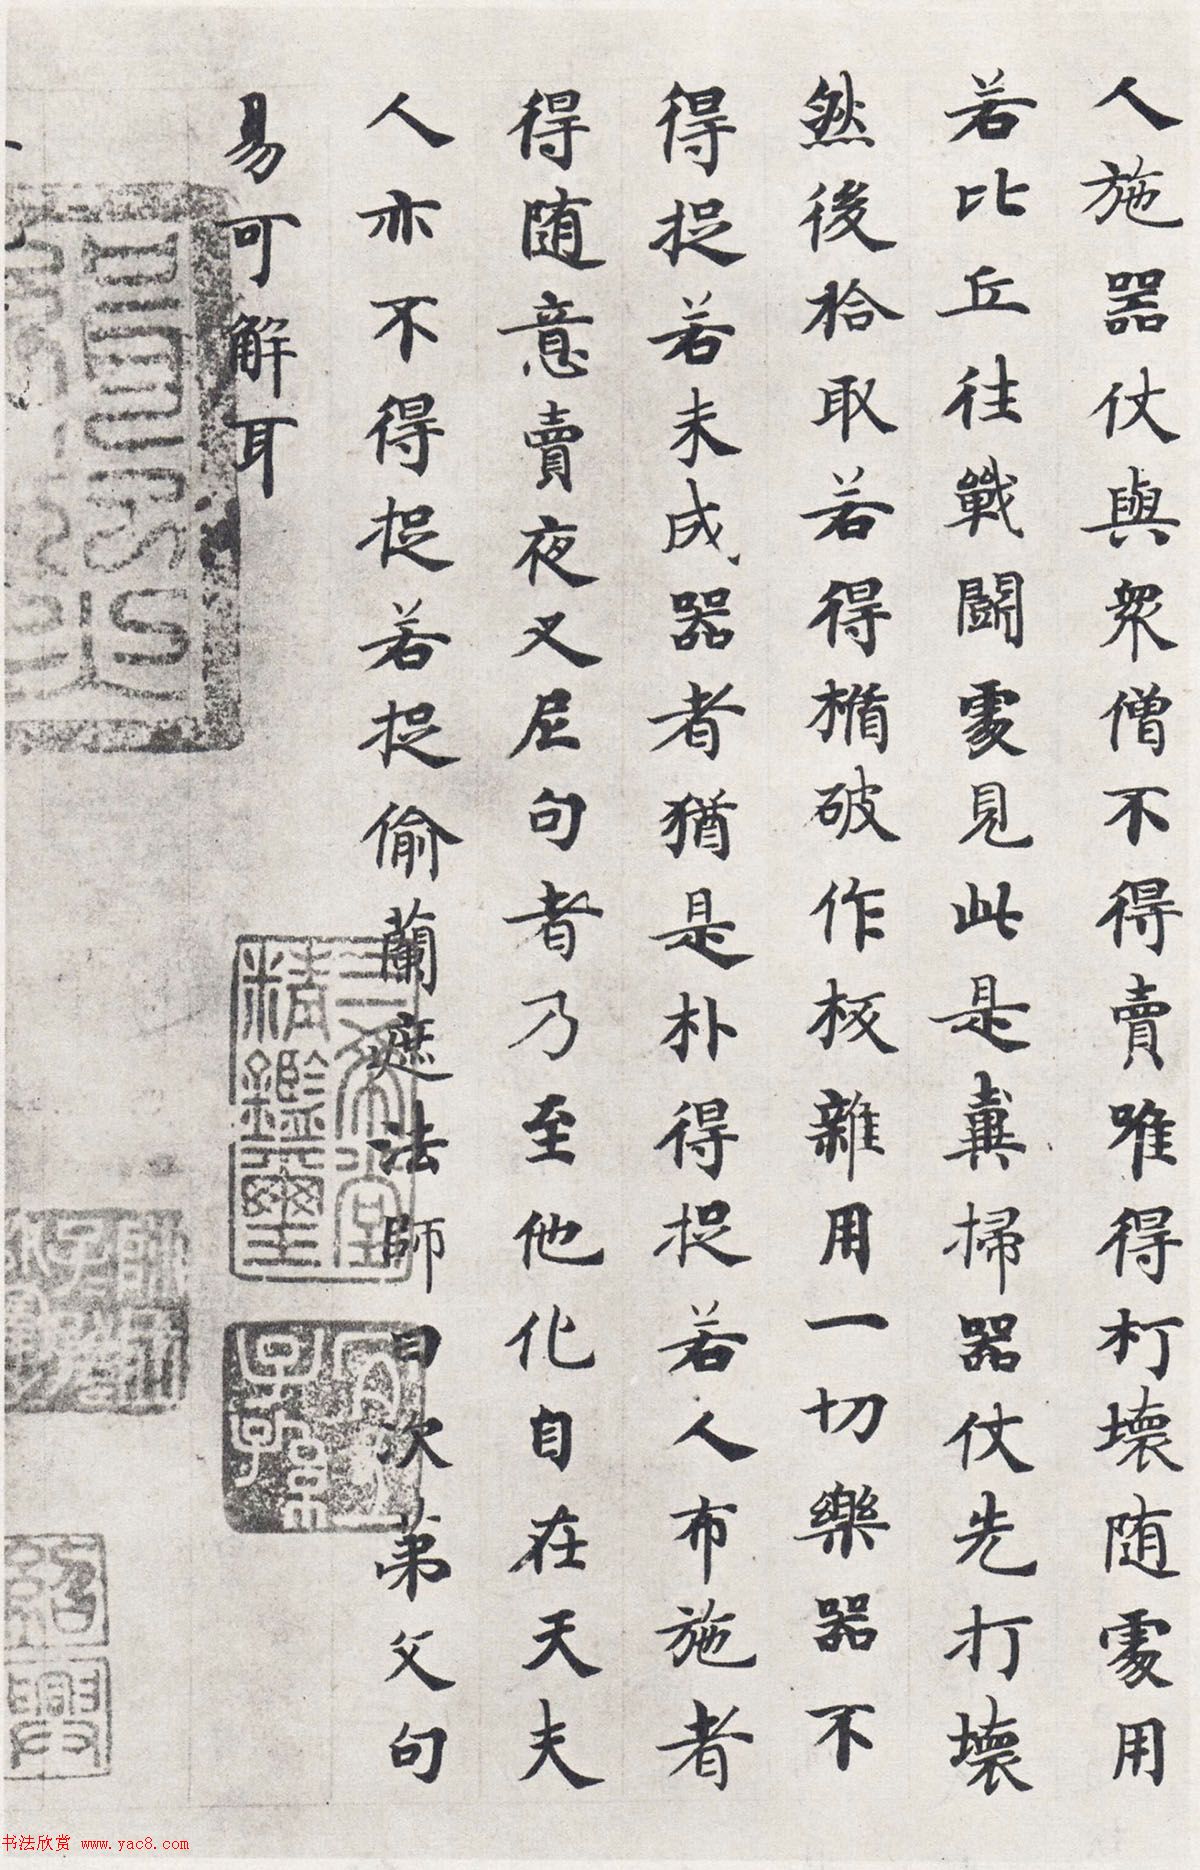 人施器仗與衆僧不得賣唯得打壞随處用
若比丘往戰鬭處見此是糞掃器仗先打壞
然後拾取若得楯破作板雜用一切樂器不
得捉若未成器者猶是朴得捉若人布施者
得随意賣夜叉屈句者乃至他化自在天夫
人亦不得捉若捉偷蘭遮法師曰次苐父句
易可解耳
三希堂
精鑑璽
宜子孫
紹興
书法欣赏 www.yac8.com